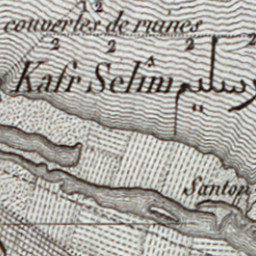 couvertes de ruines
2
2 2 2 2
Kafr Selîm سليم
Santon